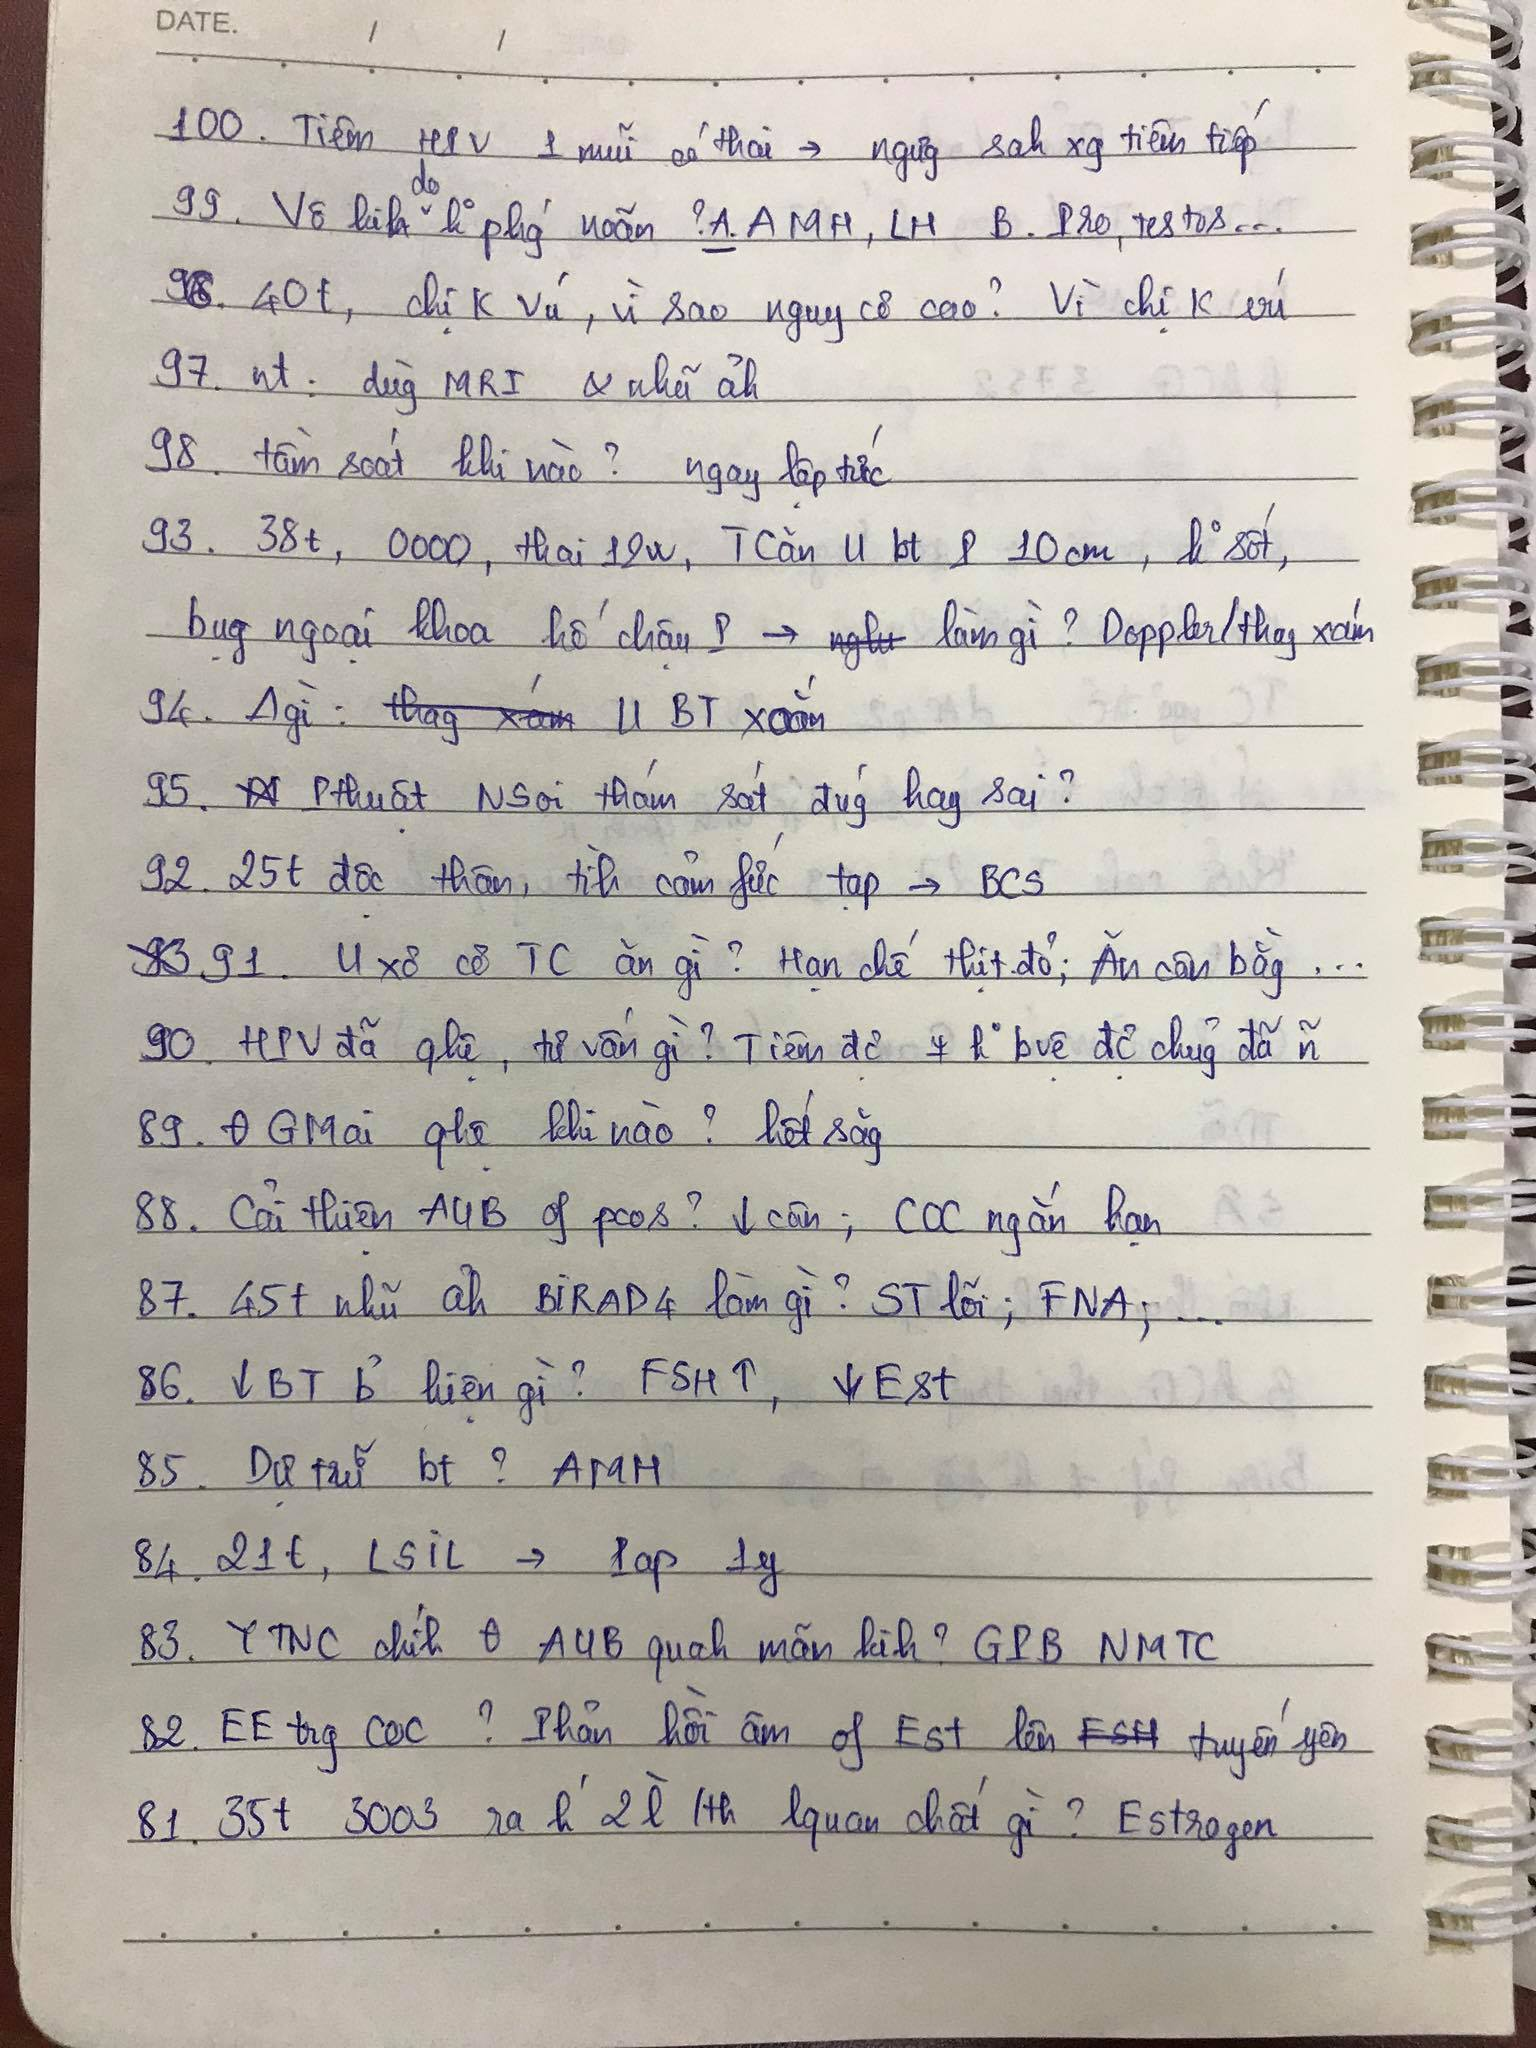 DATE. / /
100. Tiêm HPV 1 mũi có thai → ngưg sah xg tiêm tiếp
99. Vô kih do k° phg noãn ? A. AMH, LH B. Pro, testos...
96. 40t, chị K vú, vì sao nguy cơ cao? Vì chị K vú
97. nt: dùg MRI & nhũ ảh
98. tầm soát khi nào? ngay lập tức
93. 38t, 0000, thai 12w, TCăn U bt P 10cm, k° sốt,
bụg ngoại khoa hố chậu P → làm gì? Doppler/thag xám
94. Δ gì: U BT xoắn
95. Pthuật NSoi thám sát đúg hay sai?
92. 25t độc thân, tìh cảm fức tạp → BCS
91. U xơ cơ TC ăn gì? Hạn chế thịt đỏ; Ăn cân bằg ...
90. HPV đã qhệ, tư vấn gì? Tiêm đc k° bvệ đc chủg đã ñ
89. θ GMai qhệ khi nào? hết sàg
88. Cải thiện AUB of pcos? ↓ cân; COC ngắn hạn
87. 45t nhũ ảh BiRAD4 làm gì? ST lõi; FNA; ...
86. ↓ BT b° hiện gì? FSH↑, ↓Est
85. Dự trữ bt? AMH
84. 21t, LSiL → Pap 1y
83. YTNC chíh θ AUB quah mãn kih? GPB NMTC
82. EE trg COC? Phản hồi âm of Est lên tuyến yên
81. 35t 3003 ra h 2 lề /th lquan chất gì? Estrogen